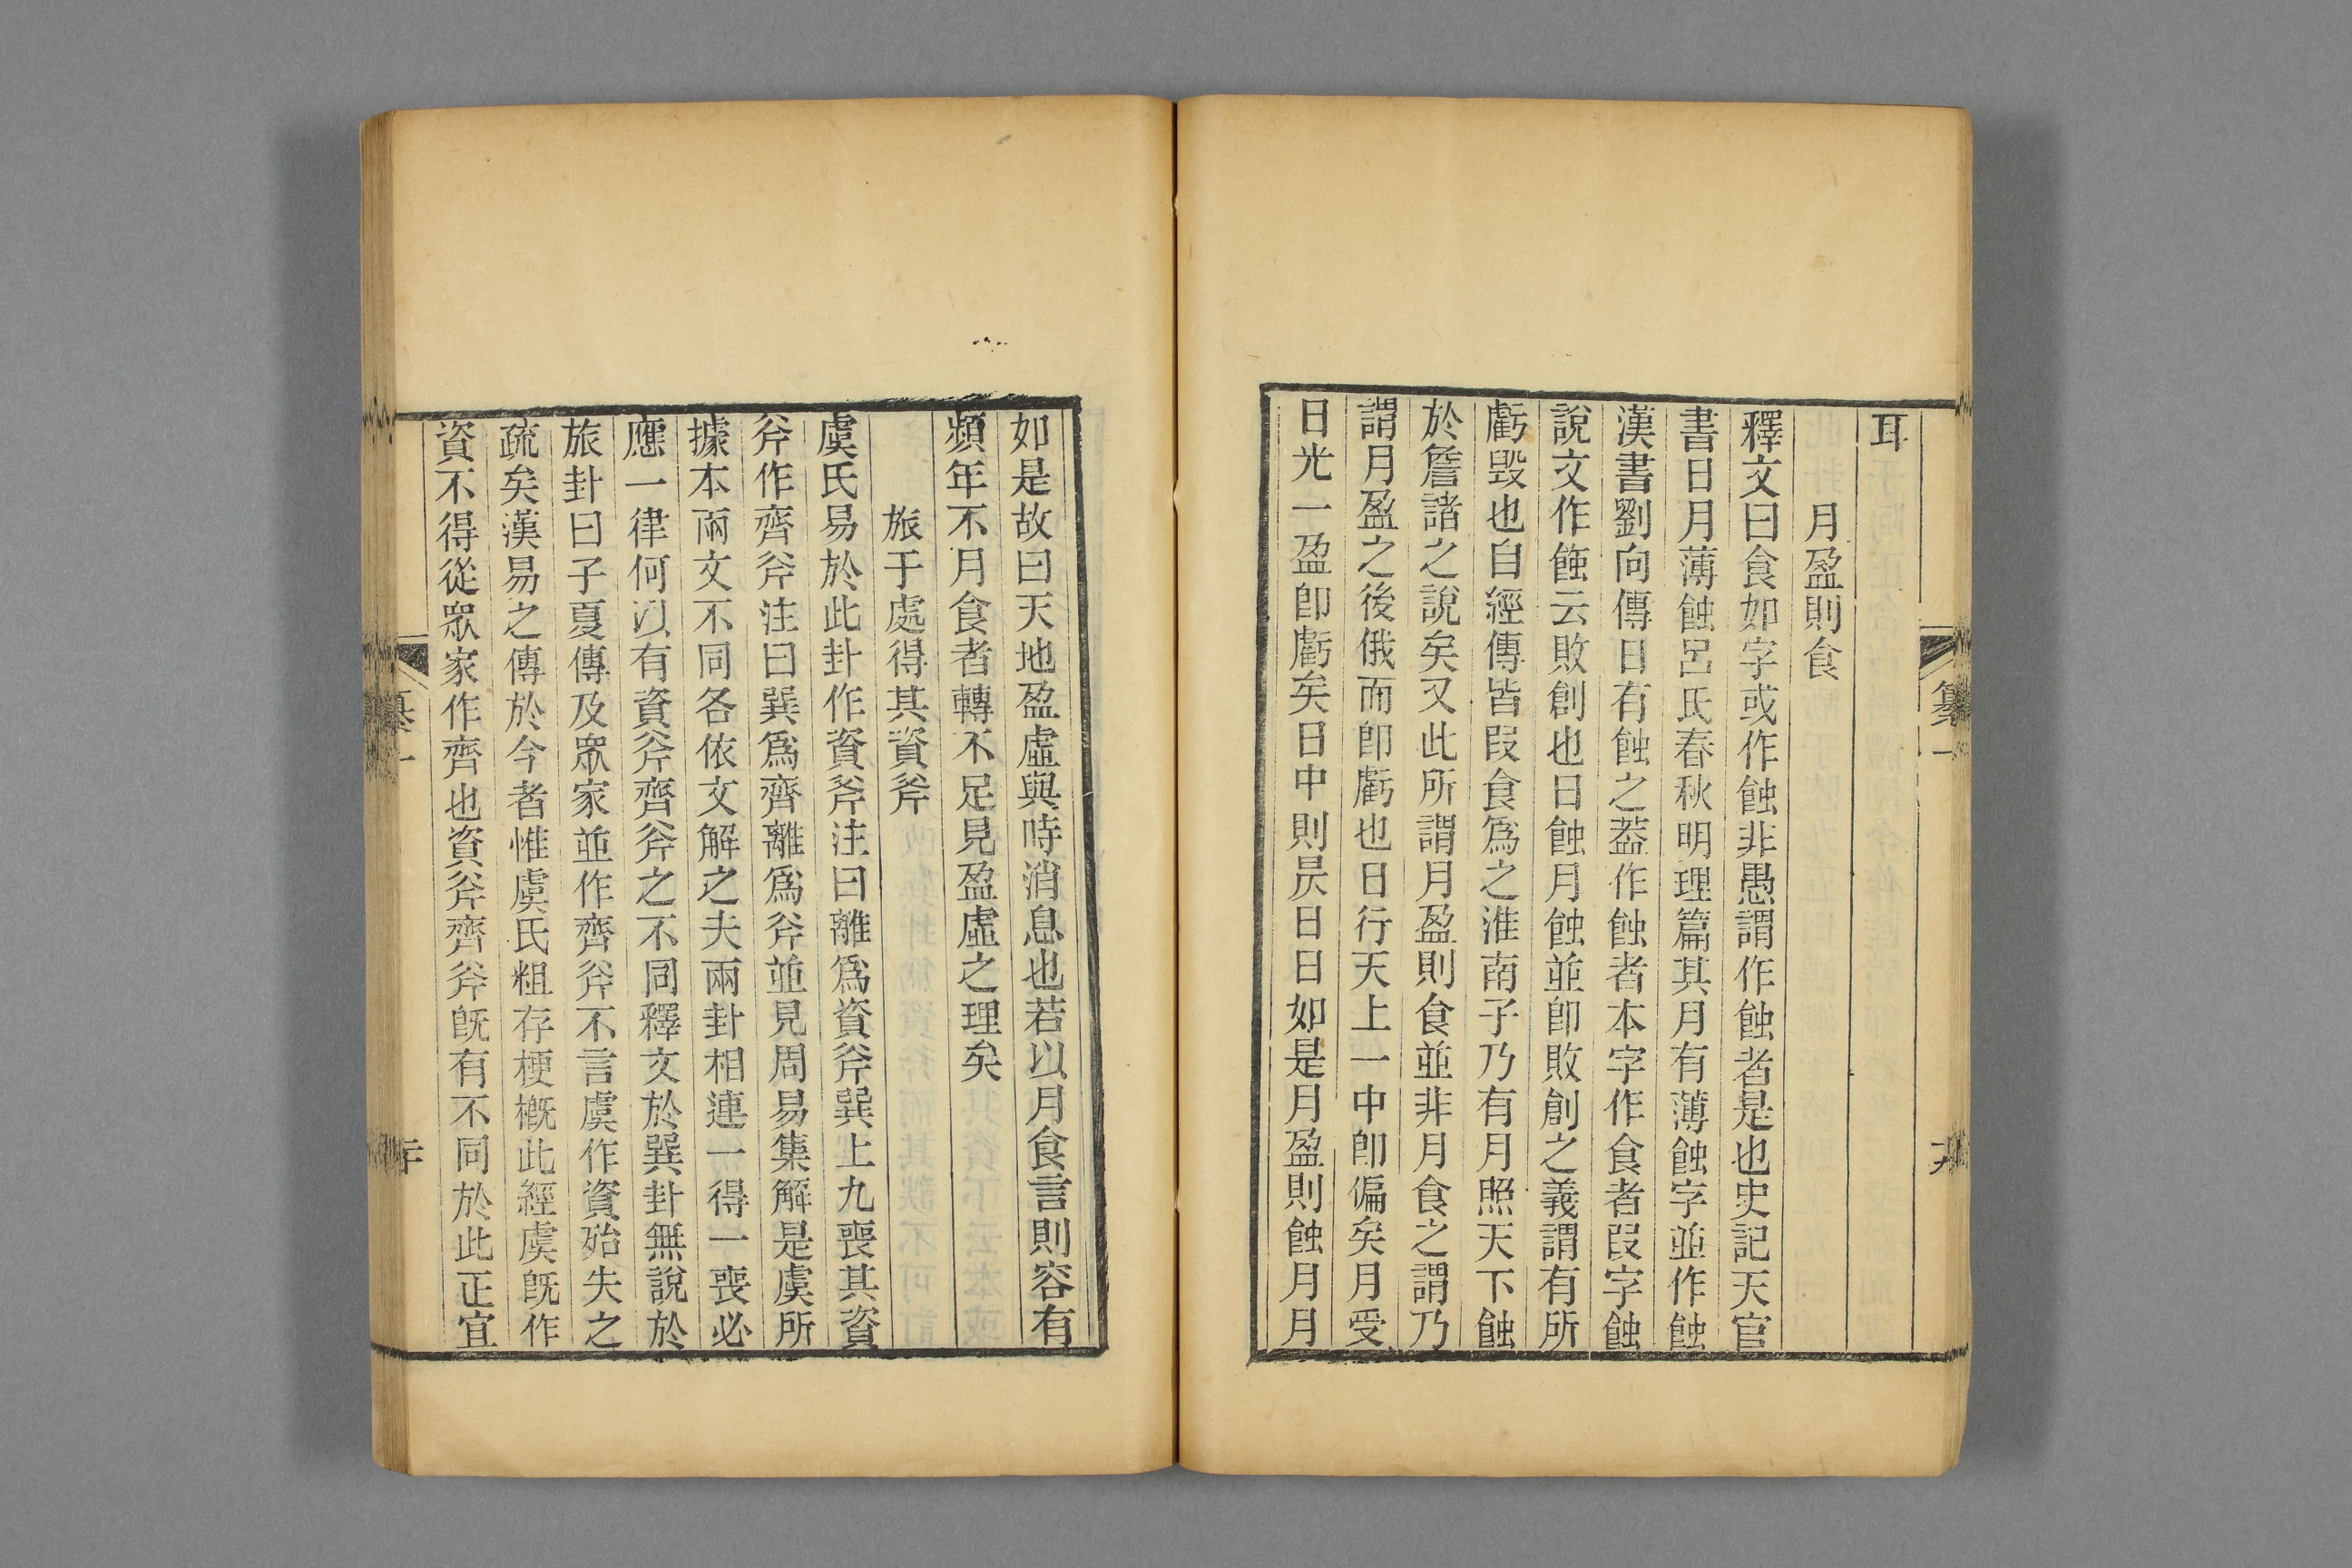 耳
月盈則食
釋文曰食如字或作蝕非愚謂作蝕者是也史記天官
書日月薄蝕呂氏春秋明理篇其月有薄蝕字並作蝕
漢書劉向傳日有蝕之葢作蝕者本字作食者叚字蝕
說文作𧎅云敗創也日蝕月蝕並卽敗創之義謂有所
虧毀也自經傳皆叚食爲之淮南子乃有月照天下蝕
於詹諸之說矣又此所謂月盈則食並非月食之謂乃
謂月盈之後俄而卽虧也日行天上一中卽偏矣月受
日光一盈卽虧矣日中則昃日日如是月盈則蝕月月
如是故曰天地盈虛與時消息也若以月食言則容有
頻年不月食者轉不足見盈虛之理矣
旅于處得其資斧
虞氏易於此卦作資斧注曰離爲資斧巽上九喪其資
斧作齊斧注曰巽爲齊離爲斧並見周易集解是虞所
據本兩文不同各依文解之夫兩卦相連一得一喪必
應一律何以有資斧齊斧之不同釋文於巽卦無說於
旅卦曰子夏傳及眾家並作齊斧不言虞作資殆失之
疏矣漢易之傳於今者惟虞氏粗存梗槪此經虞旣作
資不得從眾家作齊也資斧齊斧旣有不同於此正宜